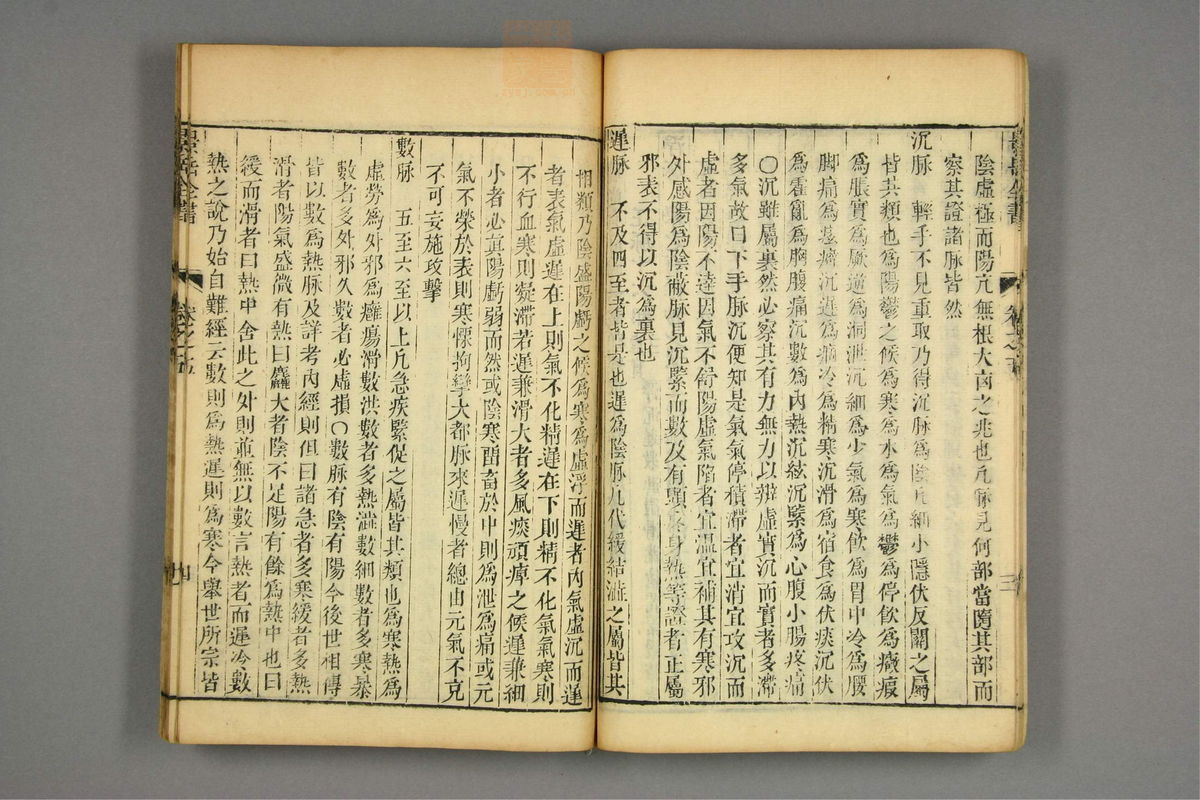 陰虛極而陽亢無根大凶之兆也凡脉見何部當隨其部而
察其證諸脉皆然
沉脉 輕手不見重取乃得沉脉為陰凡細小隱伏反關之屬
皆其類也為陽鬱之候為寒為水為氣為鬱為停飲為癥瘕
為脹實為厥逆為洞泄沉細為少氣為寒飲為胃中冷為腰
脚痛為痃癖沉遲為痼冷為精寒沉滑為宿食為伏痰沉伏
為霍亂為胸腹痛沉數為內熱沉弦沉緊為心腹小腸疼痛
〇沉雖屬裏然必察其有力無力以辯虛實沉而實者多滯
多氣故曰下手脉沉便知是氣氣停積滯者宜消宜攻沉而
虛者因陽不達因氣不舒陽虛氣陷者宜溫宜補其有寒邪
外感陽為陰蔽脉見沉緊而數及有頭疼身熱等證者正屬
邪表不得以沉為裏也
遲脉 不及四至者皆是也遲為陰脉凡代緩結澁之屬皆其
相類乃陰盛陽虧之候為寒為虛浮而遲者內氣虛沉而遲
者表氣虛遲在上則氣不化精遲在下則精不化氣氣寒則
不行血寒則凝滯若遲兼滑大者多風痰頑痺之候遲兼細
小者必真陽虧弱而然或陰寒留畜於中則為泄為痛或元
氣不榮於表則寒慄拘攣大都脉來遲慢者總由元氣不充
不可妄施攻擊
數脉 五至六至以上凡急疾緊促之屬皆其類也為寒熱為
虛勞為外邪為癰瘍滑數洪數者多熱澁數細數者多寒暴
數者多外邪久數者必虛損〇數脉有陰有陽今後世相傳
皆以數為熱脉及詳考內經則但曰諸急者多寒緩者多熱
滑者陽氣盛微有熱曰麤大者陰不足陽有餘為熱中也曰
緩而滑者曰熱中舍此之外則並無以數言熱者而遲冷數
熱之說乃始自難經云數則為熱遲則為寒今舉世所宗皆
景岳全書
卷之五
三
景岳全書
卷之五
四